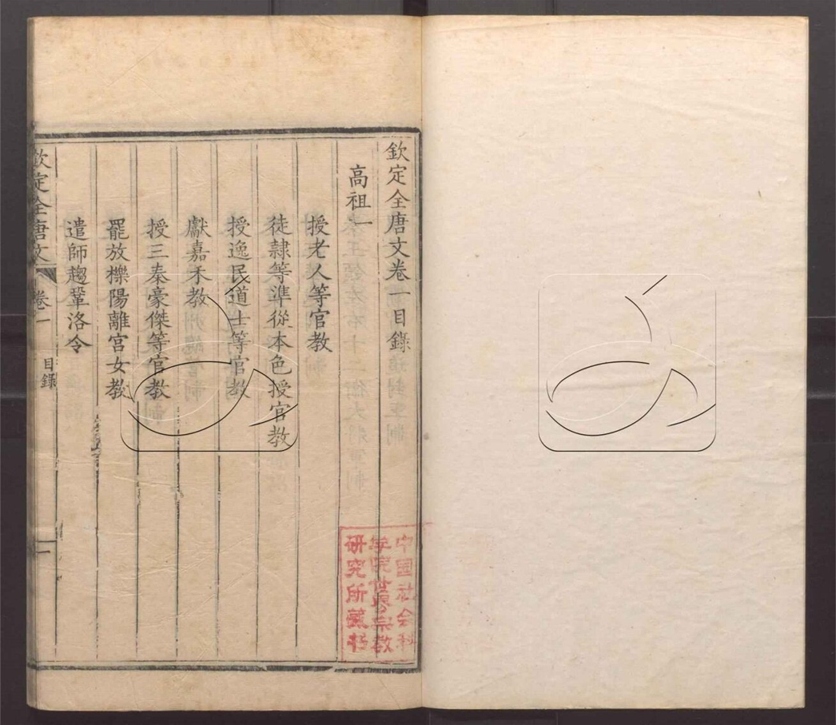 欽定全唐文卷一目錄
高祖一
授老人等官教
徒隷等準從本色授官教
授逸民道士等官教
獻嘉禾教
授三秦豪傑等官教
罷放櫟陽離宮女教
遣師趨鞏洛令
欽定全唐文
卷一
目錄
一
中國社会科
学院世界宗教
研究所藏书